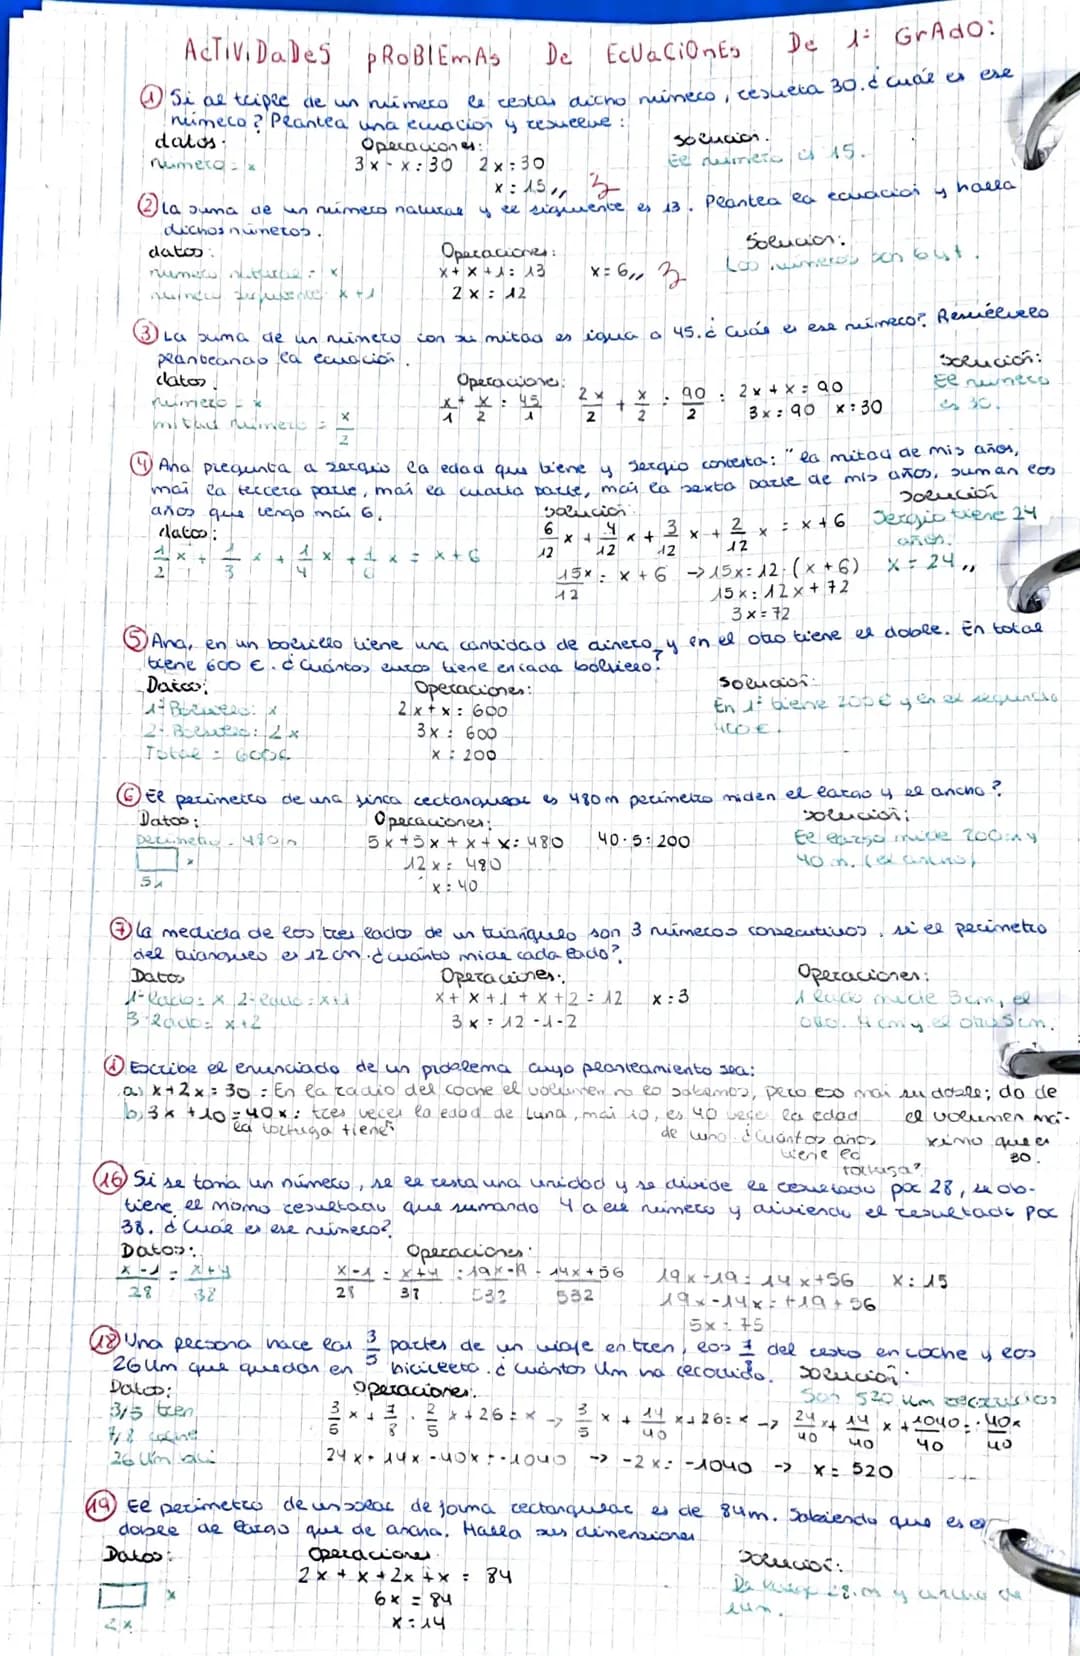 ACTIVIDADES PROBLEMAS De ECUACIONES De 1º GrADO:
① Si al triple de un número le restas dicho número, resulta 30. ¿Cuál es ese
número? Plantea una ecuación y resuelve:
datos: Operaciones: solución:
número = x 3x - x = 30 2x = 30 El número es 15.
x = 15,, 3
② La suma de un número natural y el siguiente es 13. Plantea la ecuación y halla
dichos números.
datos: Operaciones: Solución:
número natural = x x + x + 1 = 13 x = 6,, 3 Los números son 6 y 7.
número siguiente x + 1 2x = 12
③ La suma de un número con su mitad es igual a 45. ¿Cuál es ese número? Resuélvelo
planteando la ecuación.
datos: Operaciones: Solución:
número = x x/1 + x/2 = 45/1 2x/2 + x/2 = 90/2 = 2x + x = 90 El número
mitad número = x/2 3x = 90 x = 30 es 30.
④ Ana pregunta a Sergio la edad que tiene y Sergio contesta: "la mitad de mis años,
mas la tercera parte, mas la cuarta parte, mas la sexta parte de mis años, suman los
años que tengo mas 6. solución
datos: solución: 6/12 x + 4/12 x + 3/12 x + 2/12 x = x + 6 Sergio tiene 24 años.
1/2 x + 1/3 x + 1/4 x + 1/6 x = x + 6
15x/12 = x + 6 → 15x = 12·(x + 6) x = 24,,
15x = 12x + 72
3x = 72
⑤ Ana, en un bolsillo tiene una cantidad de dinero, y en el otro tiene el doble. En total
tiene 600 €. ¿Cuántos euros tiene en cada bolsillo?
Datos: Operaciones: Solución:
1º Bolsillo: x 2x + x = 600 En 1º tiene 200 € y en el segundo
2º Bolsillo: 2x 3x = 600 400 €.
Total = 600€ x = 200
⑥ El perimetro de una finca rectangular es 480 m perimetro miden el largo y el ancho?
Datos: Operaciones: solución:
perimetro - 480m 5x + 5x + x + x = 480 40·5 = 200 El largo mide 200m y
x 12x = 480 40 m. (el ancho)
5x x = 40
⑦ La medida de los tres lados de un triangulo son 3 números consecutivos, si el perimetro
del triangulo es 12 cm. ¿Cuánto mide cada lado?
Datos Operaciones: Operaciones:
1º lado = x 2º lado = x+1 x + x + 1 + x + 2 = 12 x = 3 1 lado mide 3cm, el
3º lado = x+2 3x = 12 - 1 - 2 otro 4 cm y el otro 5cm.
① Escribe el enunciado de un problema cuyo planteamiento sea:
a) x + 2x = 30 = En la radio del coche el volumen no lo sabemos, pero eso mas su doble; da de
b) 3x + 10 = 40x = tres veces la edad de Luna, mas 10, es 40 veces la edad el volumen má-
la tortuga tiene de Luna ¿Cuántos años ximo que es
tiene la 30.
tortuga?
16 Si se toma un número, se le resta una unidad y se divide el resultado por 28, se ob-
tiene el mismo resultado que sumando 4 a ese número y dividiendo el resultado por
38. ¿Cuál es ese número?
Datos: Operaciones:
x-1/28 = x+4/38 x-1/28 = x+4/38 = 19x-19/532 = 14x+56/532 19x - 19 = 14x + 56 x = 15
19x - 14x = +19 + 56
5x = 75
18 Una persona hace las 3/5 partes de un viaje en tren, los 7/8 del resto en coche y los
26 km que quedan en bicicleta. ¿Cuántos km ha recorrido. Solución:
Datos: Operaciones: Son 520 km
3/5 tren 3/5 x + 7/8 · 2/5 x + 26 = x → 3/5 x + 14/40 x + 26 = x → 24/40 x + 14/40 x + 1040/40 = 40x/40
7/8 coche
26 km bici 24x + 14x - 40x = -1040 → -2x = -1040 → x = 520
19 El perimetro de un solar de forma rectangular es de 84m. Sabiendo que es el
doble de largo que de ancha. Halla sus dimensiones
Datos: Operaciones Solución:
x 2x + x + 2x + x = 84
2x 6x = 84
x = 14